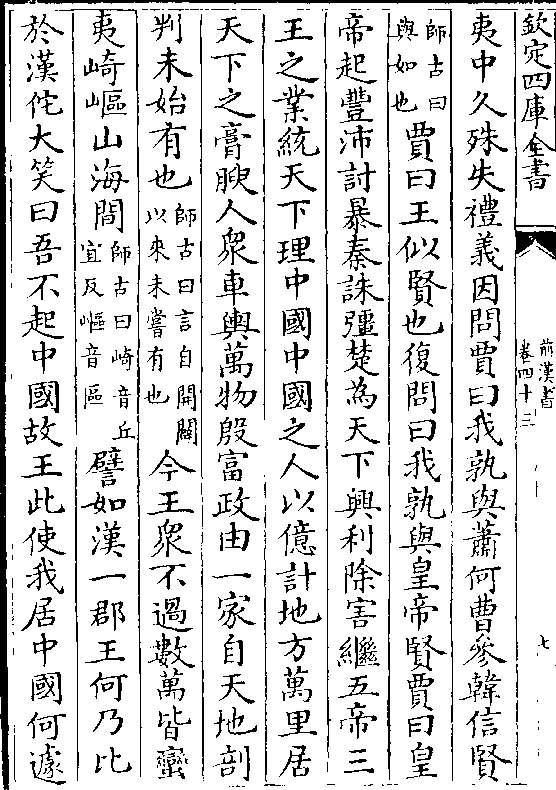 欽定四庫全書
前漢書
卷四十三
七
夷中久殊失禮義因問賈曰我孰與蕭何曹參韓信賢
師古曰
與如也
賈曰王似賢也復問曰我孰與皇帝賢賈曰皇
帝起豐沛討暴秦誅彊楚為天下興利除害繼五帝三
王之業統天下理中國中國之人以億計地方萬里居
天下之膏腴人衆車輿萬物殷富政由一家自天地剖
判未始有也
師古曰言自開闢
以來未嘗有也
今王衆不過數萬皆蠻
夷崎嶇山海間
師古曰崎音丘
宜反嶇音區
譬如漢一郡王何乃比
於漢佗大笑曰吾不起中國故王此使我居中國何遽